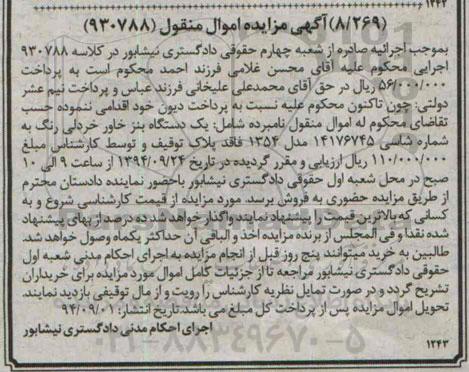 ۱۲۴۲
(۸/۲۶۹) آگهی مزایده اموال منقول (۹۳۰۷۸۸)
بموجب اجرائیه صادره از شعبه چهارم حقوقی دادگستری نیشابور در کلاسه ۹۳۰۷۸۸
اجرایی محکوم علیه آقای محسن غلامی فرزند احمد محکوم است به پرداخت
۵۶/۰۰۰/۰۰۰ ریال در حق آقای محمدعلی علیخانی فرزند عباس و پرداخت نیم عشر
دولتی: چون تاکنون محکوم علیه نسبت به پرداخت دیون خود اقدامی ننموده حسب
تقاضای محکوم له اموال منقول نامبرده شامل: یک دستگاه بنز خاور خردلی رنگ به
شماره شاسی ۱۴۱۷۶۷۴۵ مدل ۱۳۵۴ فاقد پلاک توقیف و توسط کارشناس مبلغ
۱۱۰/۰۰۰/۰۰۰ ریال ارزیابی و مقرر گردیده در تاریخ ۱۳۹۴/۰۹/۲۴ از ساعت ۹ الی ۱۰
صبح در محل شعبه اول حقوقی دادگستری نیشابور باحضور نماینده دادستان محترم
از طریق مزایده حضوری به فروش برسد. مورد مزایده از قیمت کارشناسی شروع و به
کسانی که بالاترین قیمت را پیشنهاد نمایند واگذار خواهد شد ده درصد از بهای پیشنهاد
شده نقداً و فی المجلس از برنده مزایده اخذ و الباقی آن حداکثر یکماه وصول خواهد شد.
طالبین به خرید میتوانند پنج روز قبل از انجام مزایده به اجرای احکام مدنی شعبه اول
حقوقی دادگستری نیشابور مراجعه تا از جزئیات کامل اموال مورد مزایده برای خریداران
تشریح گردد و در صورت تمایل نظریه کارشناس را رویت و از مال توقیفی بازدید نمایند.
تحویل اموال مزایده پس از پرداخت کل مبلغ می باشد. تاریخ انتشار: ۹۴/۰۹/۰۱
اجرای احکام مدنی دادگستری نیشابور
۱۲۴۳
۰۲۱-۸۸۳۴۹۶۷۰-۵